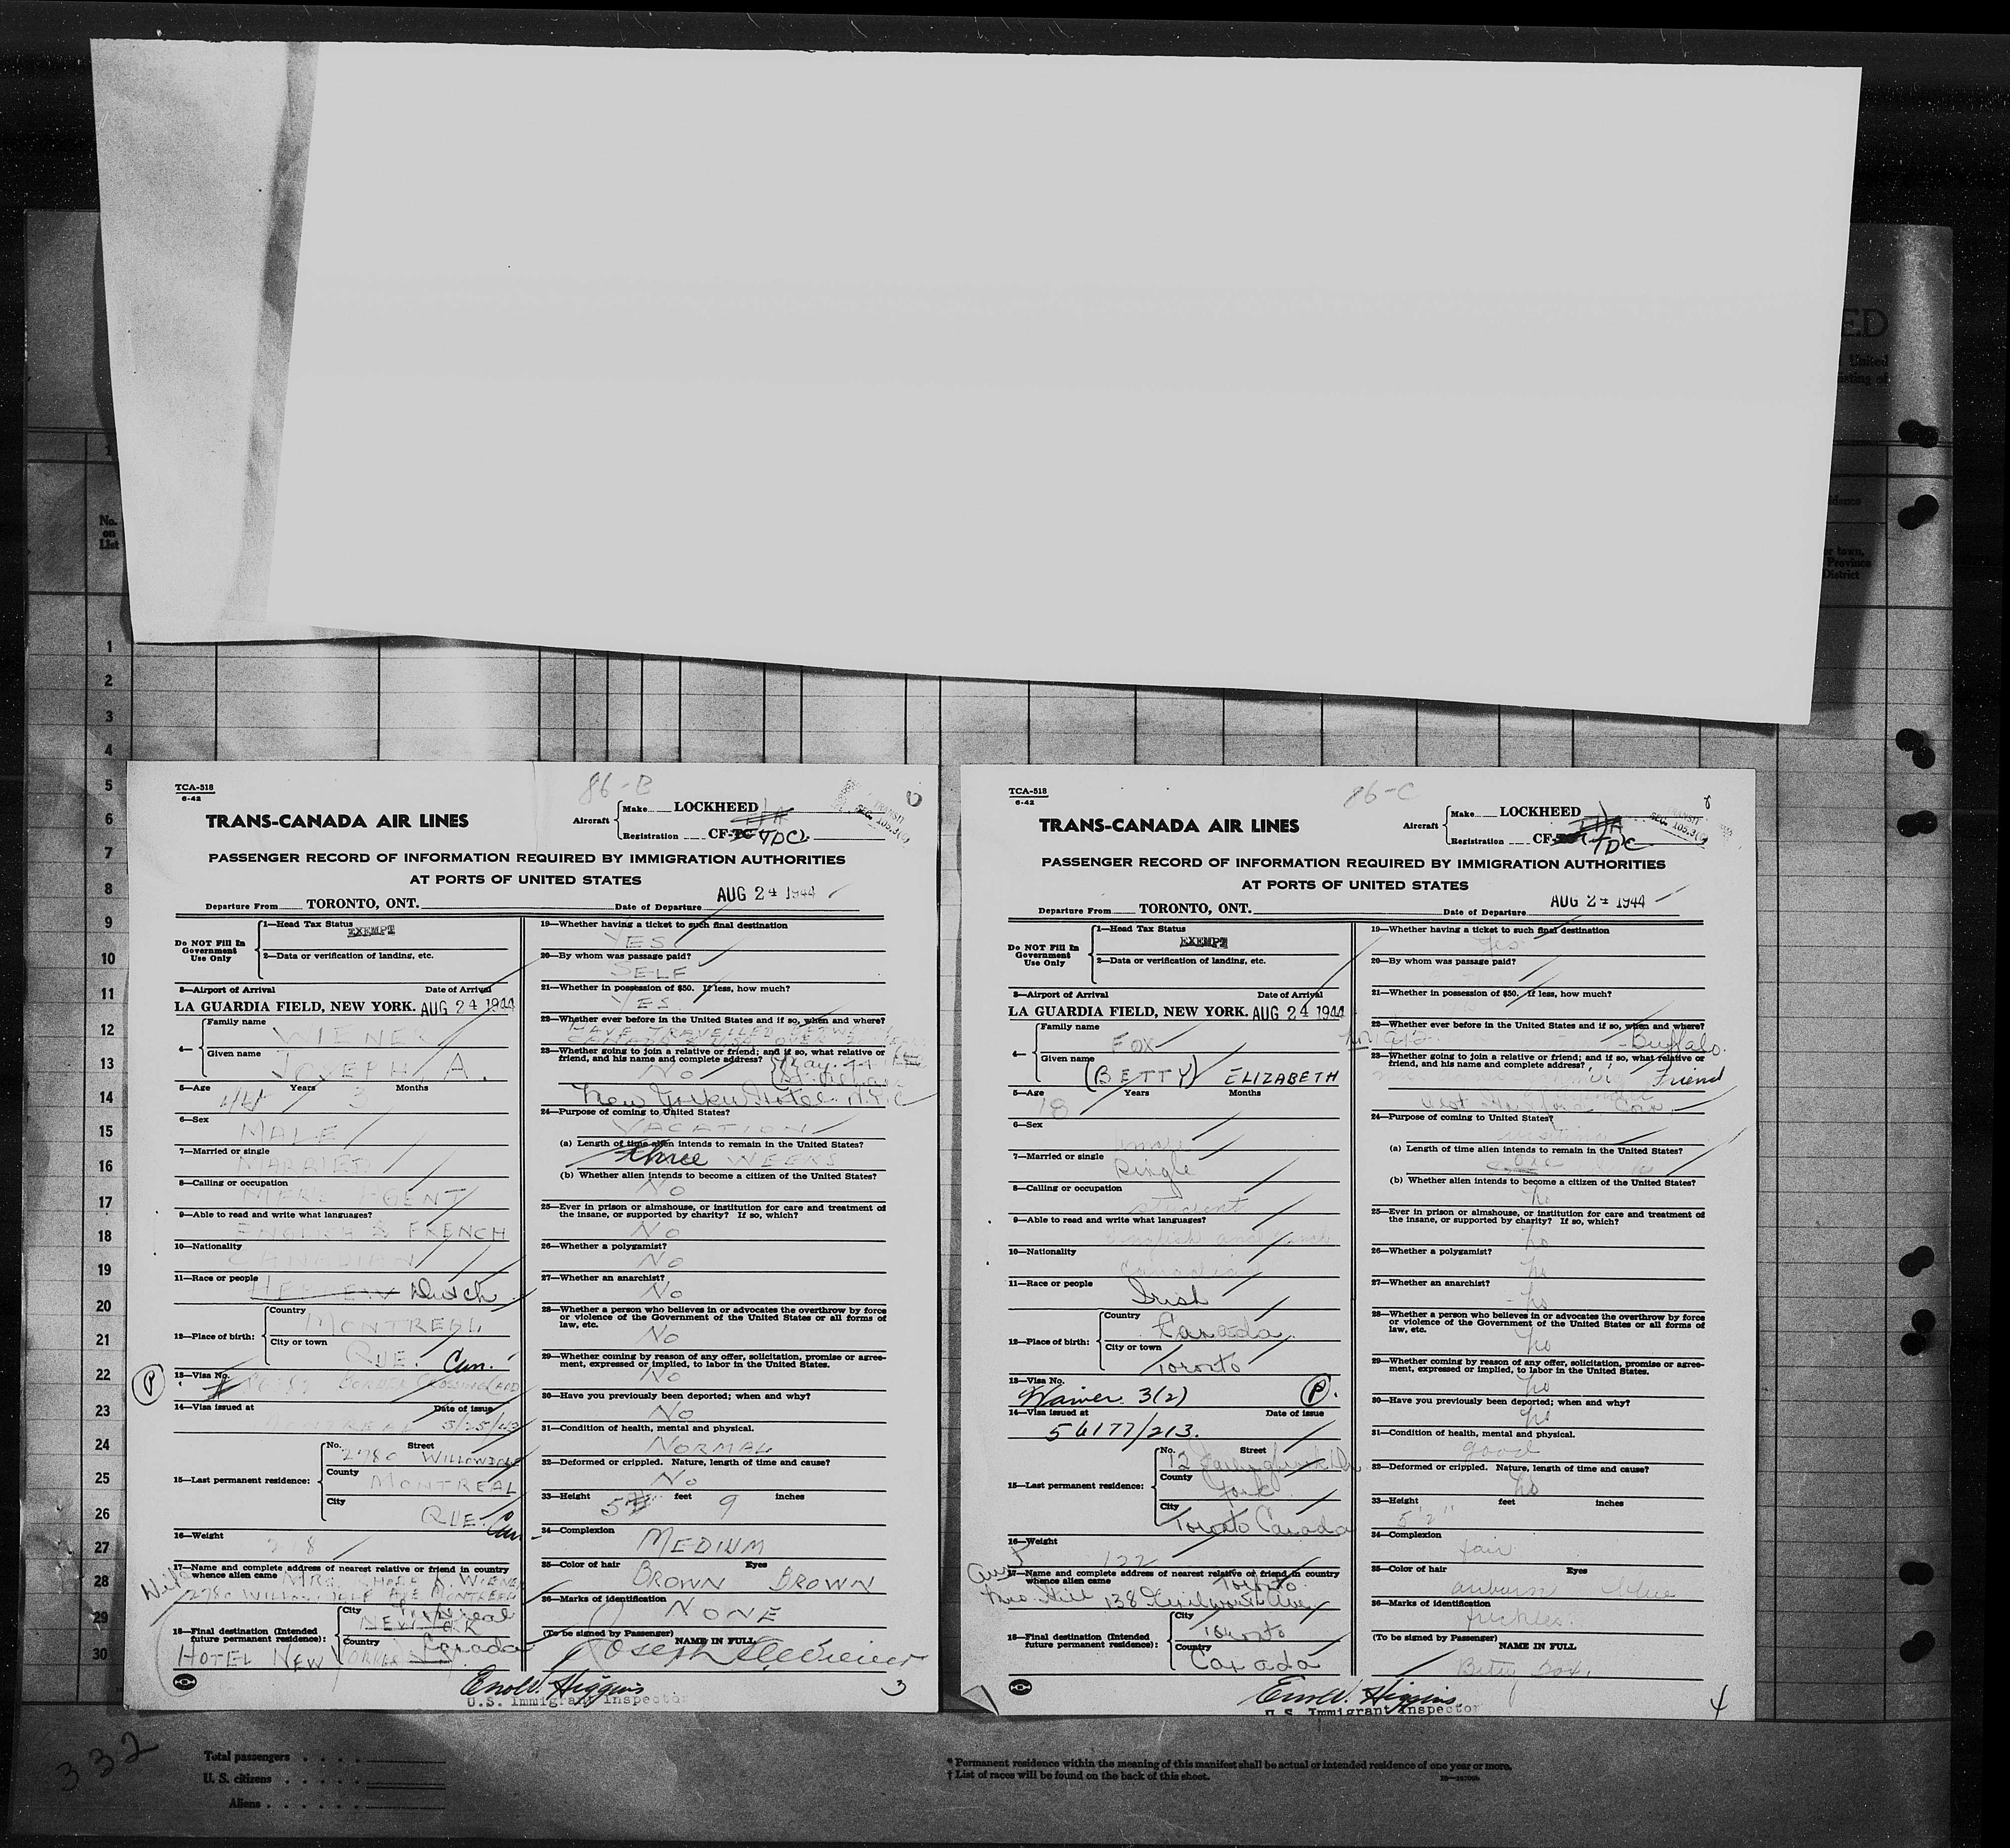 ED
United
No.
on
List
or town,
Province
District
1
2
3
4
5
6
7
8
9
10
11
12
13
14
15
16
17
18
19
20
21
22
23
24
25
26
27
28
29
30
TCA-518
6-42
86-B
TRANS-CANADA AIR LINES
Aircraft
Make LOCKHEED
Registration CF-TDC
PASSENGER RECORD OF INFORMATION REQUIRED BY IMMIGRATION AUTHORITIES
AT PORTS OF UNITED STATES
Departure From TORONTO, ONT. Date of Departure AUG 24 1944
Do NOT Fill In
Government
Use Only
1—Head Tax Status
EXEMPT
2—Data or verification of landing, etc.
3—Airport of Arrival Date of Arrival
LA GUARDIA FIELD, NEW YORK. AUG 24 1944
4— Family name
WIENER
Given name
JOSEPH. A.
5—Age Years Months
44 3
6—Sex
MALE
7—Married or single
MARRIED
8—Calling or occupation
9—Able to read and write what languages?
ENGLISH & FRENCH
10—Nationality
CANADIAN
11—Race or people
HEBREW Dutch
12—Place of birth: Country
MONTREAL
City or town
QUE. Can.
P
13—Visa No.
BORDER CROSSING CARD
14—Visa issued at Date of issue
5/25/43
15—Last permanent residence: No. Street
2780 WILLOWDALE
County
MONTREAL
City
QUE. Can
16—Weight
218
17—Name and complete address of nearest relative or friend in country
whence alien came
Wife MRS. WIENER
2780 WILLOWDALE AVE MONTREAL
18—Final destination (Intended
future permanent residence):
City Montreal
NEW YORK
Country Canada
HOTEL NEW YORKER
19—Whether having a ticket to such final destination
YES
20—By whom was passage paid?
SELF
21—Whether in possession of $50. If less, how much?
YES
22—Whether ever before in the United States and if so, when and where?
HAVE TRAVELLED BETWEEN
CANADA & USA OVER
23—Whether going to join a relative or friend; and if so, what relative or
friend, and his name and complete address?
No May 44
New Yorker Hotel N.Y.C
24—Purpose of coming to United States?
VACATION
(a) Length of time alien intends to remain in the United States?
three WEEKS
(b) Whether alien intends to become a citizen of the United States?
No
25—Ever in prison or almshouse, or institution for care and treatment of
the insane, or supported by charity? If so, which?
No
26—Whether a polygamist?
No
27—Whether an anarchist?
No
28—Whether a person who believes in or advocates the overthrow by force
or violence of the Government of the United States or all forms of
law, etc.
No
29—Whether coming by reason of any offer, solicitation, promise or agree-
ment, expressed or implied, to labor in the United States.
No
30—Have you previously been deported; when and why?
No
31—Condition of health, mental and physical.
NORMAL
32—Deformed or crippled. Nature, length of time and cause?
No
33—Height 5 feet 9 inches
34—Complexion
MEDIUM
35—Color of hair Eyes
BROWN BROWN
36—Marks of identification
NONE
(To be signed by Passenger) NAME IN FULL
Joseph A Wiener
Errol V. Higgins
U.S. Immigrant Inspector
3
TCA-518
6-42
86-C
TRANS-CANADA AIR LINES
Aircraft
Make LOCKHEED
Registration CF- TDC
PASSENGER RECORD OF INFORMATION REQUIRED BY IMMIGRATION AUTHORITIES
AT PORTS OF UNITED STATES
Departure From TORONTO, ONT. Date of Departure AUG 24 1944
Do NOT Fill In
Government
Use Only
1—Head Tax Status
EXEMPT
2—Data or verification of landing, etc.
3—Airport of Arrival Date of Arrival
LA GUARDIA FIELD, NEW YORK. AUG 24 1944
4— Family name
Fox
Given name
(BETTY) ELIZABETH
5—Age Years Months
18
6—Sex
female
7—Married or single
Single
8—Calling or occupation
student
9—Able to read and write what languages?
English and French
10—Nationality
Canadian
11—Race or people
Irish
12—Place of birth: Country
Canada
City or town
Toronto
13—Visa No.
Waiver 3(2) P.
14—Visa issued at Date of issue
56177/213.
15—Last permanent residence: No. Street
12
County
York
City
Toronto Canada
16—Weight
122
17—Name and complete address of nearest relative or friend in country
whence alien came
Aunt Toronto.
Mrs. Hill 138 Kenilworth Ave
18—Final destination (Intended
future permanent residence):
City
Toronto
Country
Canada
19—Whether having a ticket to such final destination
Yes
20—By whom was passage paid?
21—Whether in possession of $50. If less, how much?
22—Whether ever before in the United States and if so, when and where?
Buffalo.
23—Whether going to join a relative or friend; and if so, what relative or
friend, and his name and complete address?
Friend
24—Purpose of coming to United States?
(a) Length of time alien intends to remain in the United States?
(b) Whether alien intends to become a citizen of the United States?
no
25—Ever in prison or almshouse, or institution for care and treatment of
the insane, or supported by charity? If so, which?
no
26—Whether a polygamist?
no
27—Whether an anarchist?
no
28—Whether a person who believes in or advocates the overthrow by force
or violence of the Government of the United States or all forms of
law, etc.
no
29—Whether coming by reason of any offer, solicitation, promise or agree-
ment, expressed or implied, to labor in the United States.
no
30—Have you previously been deported; when and why?
no
31—Condition of health, mental and physical.
good
32—Deformed or crippled. Nature, length of time and cause?
no
33—Height feet inches
5' 2"
34—Complexion
fair
35—Color of hair Eyes
auburn blue
36—Marks of identification
freckles.
(To be signed by Passenger) NAME IN FULL
Betty Fox.
Errol V. Higgins
U.S. Immigrant Inspector
4
332
Total passengers
U.S. citizens
Aliens
* Permanent residence within the meaning of this manifest shall be actual or intended residence of one year or more.
† List of races will be found on the back of this sheet.